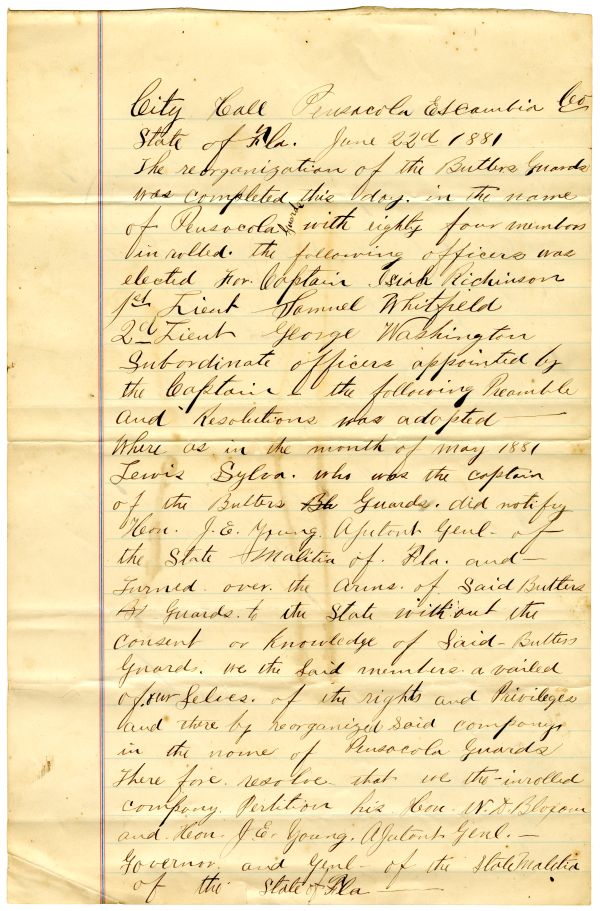 City Hall Pensacola Escambia Co
State of Fla. June 22d 1881
The reorganization of the Butlers Guards
was completed this day. in the name
of Pensacola Guards with eighty four members
inrolled. the following officers was
elected For Captain Isiah Richinson
1st Lieut Samuel Whitfield
2d Lieut George Washington
Subordinate officers appointed by
the Captain & the following Preamble
and Resolutions was adopted —
Where as in the month of may 1881
Lewis Sylva. who was the captain
of the Butlers Guards. did notify
Hon. J. E. Young. Ajutont Genl. of
the State Malitia of. Fla. and —
Turned over. the arms. of Said Butlers
Guards. to the State without the
consent or Knowledge of Said - Butlers
Guard. we the Said members a vailed
of our Selves. of the rights and Privileges
and there by reorganized Said company.
in the name of Pensacola Guards
There fore. resolve. that we the inrolled
company Pertition his. Hon. W. D. Bloxom
and. Hon. J. E. Young. Ajutont Genl. —
Governor and Genl - of the State Malitia
of the State of Fla —